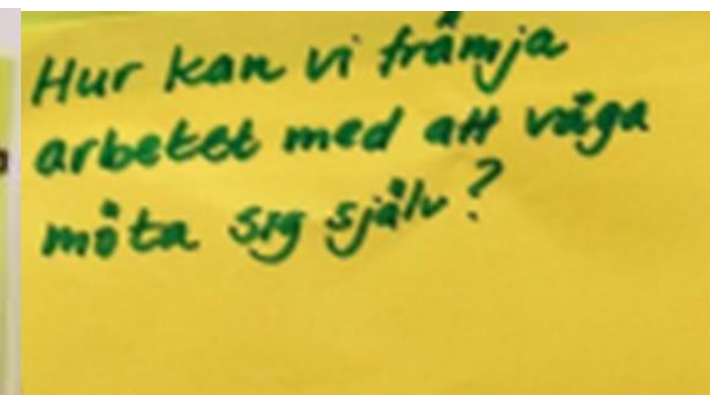 Hur kan vi främja
arbetet med att våga
möta sig själv?